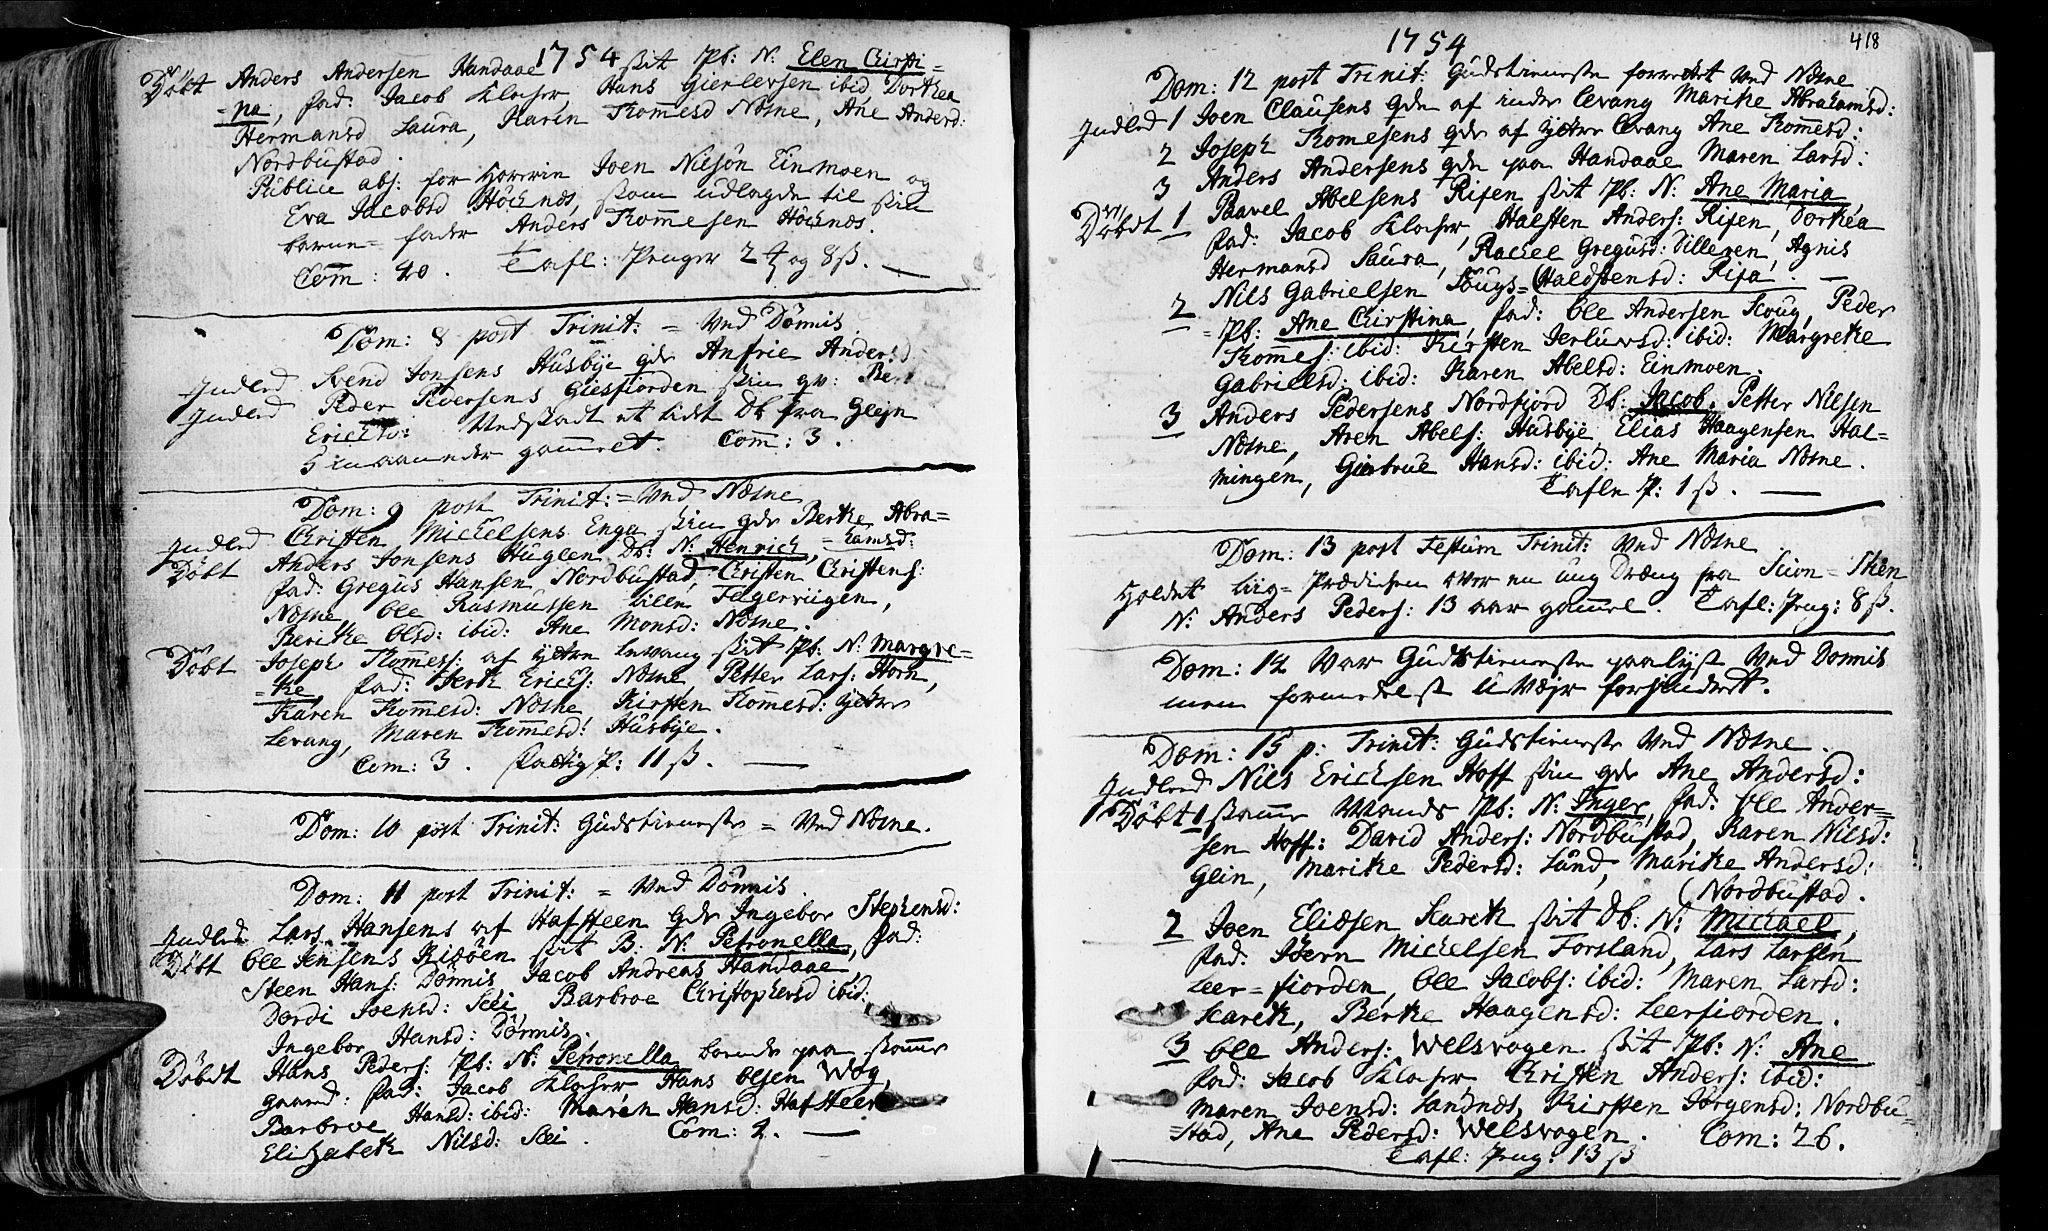 1754
Döbt Anders Andersen Handaae sit Pb: N: Elen Cirsti=
=na, fad: Jacob Klocher, Hans Gierlevsen ibid Dorthea
Hermansd Saura, Karen Thomesd Næsne, Ane Andersd:
Nordbustad.
Publice abs: for Horerie Joen Nilsøn Einmoen og
Eva Jacobsd Höchnæs, som udlagde til sin
barne= fader Anders Thommesen Höchnæs.
Com: 40. Tafl: Penger 2 og 8 ß.
Dom: 8 post Trinit: = Ved Dönnis.
Indled Svend Jonsens Husbye qde Anfrie Andersd
Indled Peder Iversens Giesfiorden sin qv:
Ericksd: Vedstadt et lidet Db fra Glejn
5 maaneder gammel. Com: 3.
Dom: 9 post Trinit: = Ved Næsne
Indled Christen Mickelsens Enge sin qde Berthe Abra=
=hamsd:
Döbt Anders Jonsens Huglen Db: N: Henrich,
fad: Gregus Hansen Nordbustad, Christen Christens:
Næsne, Ole Rasmussen lille Fagerviigen,
Berithe Olsd: ibid: Ane Monsd: Næsne.
Döbt Joseph Thomess: af ydtre Levang sit Pb: N: Margre=
=the, fad: Berth Ericks: Næsne, Petter Lars: Horn,
Karen Thommesd: Næsne Kirsten Thomesd: ydtre
Levang, Maren Thommesd: Husbye.
Com: 3. P: 11 ß.
Dom: 10 post Trinit: Gudstieneste = Ved Næsne.
Dom: 11 post Trinit: = Ved Dönnis.
Indled Lars Hansens af Hafsteen qde Ingebor Stephensd:
Döbt Ole Jensens Risöen sit B: N: Petronella, fad:
Steen Hans: Dönnis Jacob Andreas Handaae,
Dordi Joensd: Sei Barbroe Christophersd ibid:
Ingebor Hansd: Dönnis.
Döbdt Hans Peders: Pb: N: Petronella barnede paa samme
gaard: fad: Jacob Klocher Hans Olsen Wog,
Barbroe Hansd: ibid: Maren Hansd: Hafsteen
Elisabeth Nilsd: Sei. Com: 4.
418
1754
Dom: 12 post Trinit: Gudstieneste forrettet Ved Næsne
Indled 1 Joen Clausens qde af indre Levang Marithe Abrahamsd:
2 Joseph Thomesens qde af ydtre Levang Ane Thomesd:
3 Anders Andersens qde paa Handaae Maren Larsd:
Döbdt 1 Paavel Abelsens Risen sit Pb: N: Ane Maria
fad: Jacob Klocher, Halsten Anders: Risen, Dorthea
Hermansd Saura, Rachel Gregusd: Silleren, Agnis
(Haldstensd: Risa
2 Nils Gabrielsen Skougs=
=Pb: Ane Cirstina, fad: Ole Andersen Scoug, Peder
Thomes: ibid: Kirsten Jerluvsd: ibid: Margrethe
Gabrielsd: ibid: Karen Abelsd: Einmoen.
3 Anders Pedersens Nordfjord Db: Jacob. Petter Nilsen
Næsne, Aren Abels: Husbye, Elias Haagensen Hal=
mingen, Giertrue Hansd: ibid: Ane Maria Næsne.
Tafle P: 1 ß.
Dom: 13 post Festum Trinit: Ved Næsne
Holdet Liig=Prædiken over en ung Dræng fra
N: Anders Peders: 13 aar gammel. Tafl: Peng: 8 ß.
Dom: 14 Var Gudstieneste paalyst Ved Dönnis
men formedelst uVejr forhindret.
Dom: 15 p: Trinit: Gudstieneste Ved Næsne.
Indled Nils Ericksen Hoff sin qde Ane Andersd:
Döbt 1 samme Mands Pb: N: Inger, fad: Ole Ander=
sen Hoff: David Anders: Nordbustad, Karen Nilsd:
Glein, Marithe Pedersd: Sund, Marithe Andersd:
(Nordbustad.
2 Joen Eliæsen Kareth sit Db: N: Michael,
fad: Joern Mickelsen Forsland, Lars Larsen
Leer=fiorden, Ole Jacobs: ibid: Maren Larsd:
Kareth, Berthe Haagensd: Leerfiorden.
3 Ole Anders: Welsvogen sit Pb: N: Ane
fad: Jacob Klocher Christen Anders: ibid:
Maren Joensd: Sandnæs, Kirsten Jörgensd: Nordbu=
=stad, Ane Pedersd: Welsvogen. Com: 26.
Tafl: Peng: 13 ß